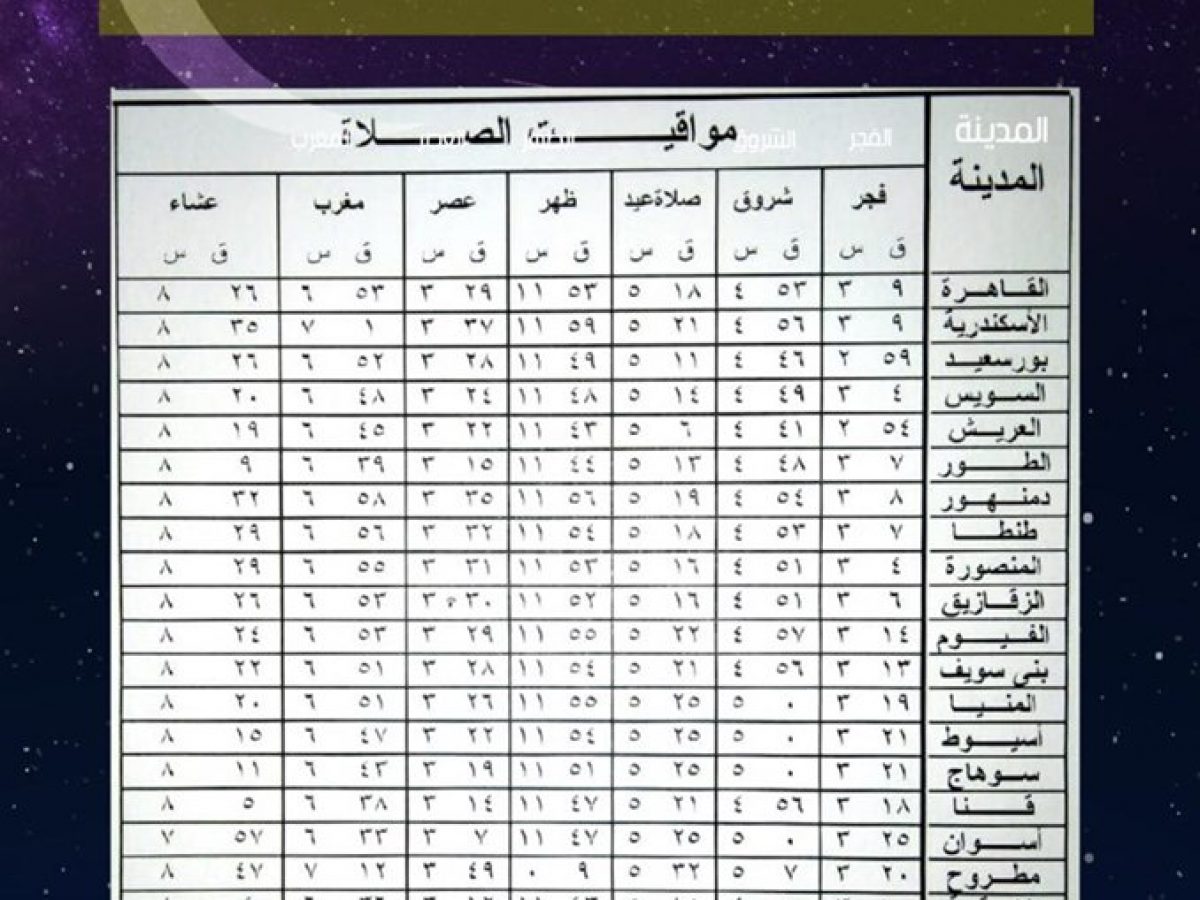 المدينة الفجر الشروق الظهر العصر المغرب
المدينة مواقيت الصلاة
فجر شروق صلاة عيد ظهر عصر مغرب عشاء
ق س ق س ق س ق س ق س ق س ق س
القاهرة ٩ ٣ ٥٣ ٤ ١٨ ٥ ٥٣ ١١ ٢٩ ٣ ٥٣ ٦ ٢٦ ٨
الأسكندرية ٩ ٣ ٥٦ ٤ ٢١ ٥ ٥٩ ١١ ٣٧ ٣ ١ ٧ ٣٥ ٨
بورسعيد ٥٩ ٢ ٤٦ ٤ ١١ ٥ ٤٩ ١١ ٢٨ ٣ ٥٢ ٦ ٢٦ ٨
السويس ٤ ٣ ٤٩ ٤ ١٤ ٥ ٤٨ ١١ ٢٤ ٣ ٤٨ ٦ ٢٠ ٨
العريش ٥٤ ٢ ٤١ ٤ ٦ ٥ ٤٣ ١١ ٢٢ ٣ ٤٥ ٦ ١٩ ٨
الطور ٧ ٣ ٤٨ ٤ ١٣ ٥ ٤٤ ١١ ١٥ ٣ ٣٩ ٦ ٩ ٨
دمنهور ٨ ٣ ٥٤ ٤ ١٩ ٥ ٥٦ ١١ ٣٥ ٣ ٥٨ ٦ ٣٢ ٨
طنطا ٧ ٣ ٥٣ ٤ ١٨ ٥ ٥٤ ١١ ٣٢ ٣ ٥٦ ٦ ٢٩ ٨
المنصورة ٤ ٣ ٥١ ٤ ١٦ ٥ ٥٣ ١١ ٣١ ٣ ٥٥ ٦ ٢٩ ٨
الزقازيق ٦ ٣ ٥١ ٤ ١٦ ٥ ٥٢ ١١ ٣٠ ٣ ٥٣ ٦ ٢٦ ٨
الفيوم ١٤ ٣ ٥٧ ٤ ٢٢ ٥ ٥٥ ١١ ٢٩ ٣ ٥٣ ٦ ٢٤ ٨
بنى سويف ١٣ ٣ ٥٦ ٤ ٢١ ٥ ٥٤ ١١ ٢٨ ٣ ٥١ ٦ ٢٢ ٨
المنيا ١٩ ٣ ٠ ٥ ٢٥ ٥ ٥٥ ١١ ٢٦ ٣ ٥١ ٦ ٢٠ ٨
أسيوط ٢١ ٣ ٠ ٥ ٢٥ ٥ ٥٤ ١١ ٢٢ ٣ ٤٧ ٦ ١٥ ٨
سوهاج ٢١ ٣ ٠ ٥ ٢٥ ٥ ٥١ ١١ ١٩ ٣ ٤٣ ٦ ١١ ٨
قنا ١٨ ٣ ٥٦ ٤ ٢١ ٥ ٤٧ ١١ ١٤ ٣ ٣٨ ٦ ٥ ٨
أسوان ٢٥ ٣ ٠ ٥ ٢٥ ٥ ٤٧ ١١ ٧ ٣ ٣٣ ٦ ٥٧ ٧
مطروح ٢٠ ٣ ٧ ٥ ٣٢ ٥ ٩ ٠ ٤٩ ٣ ١٢ ٧ ٤٧ ٨